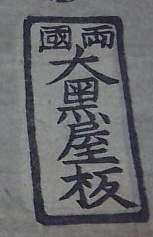 両國
大黒屋板